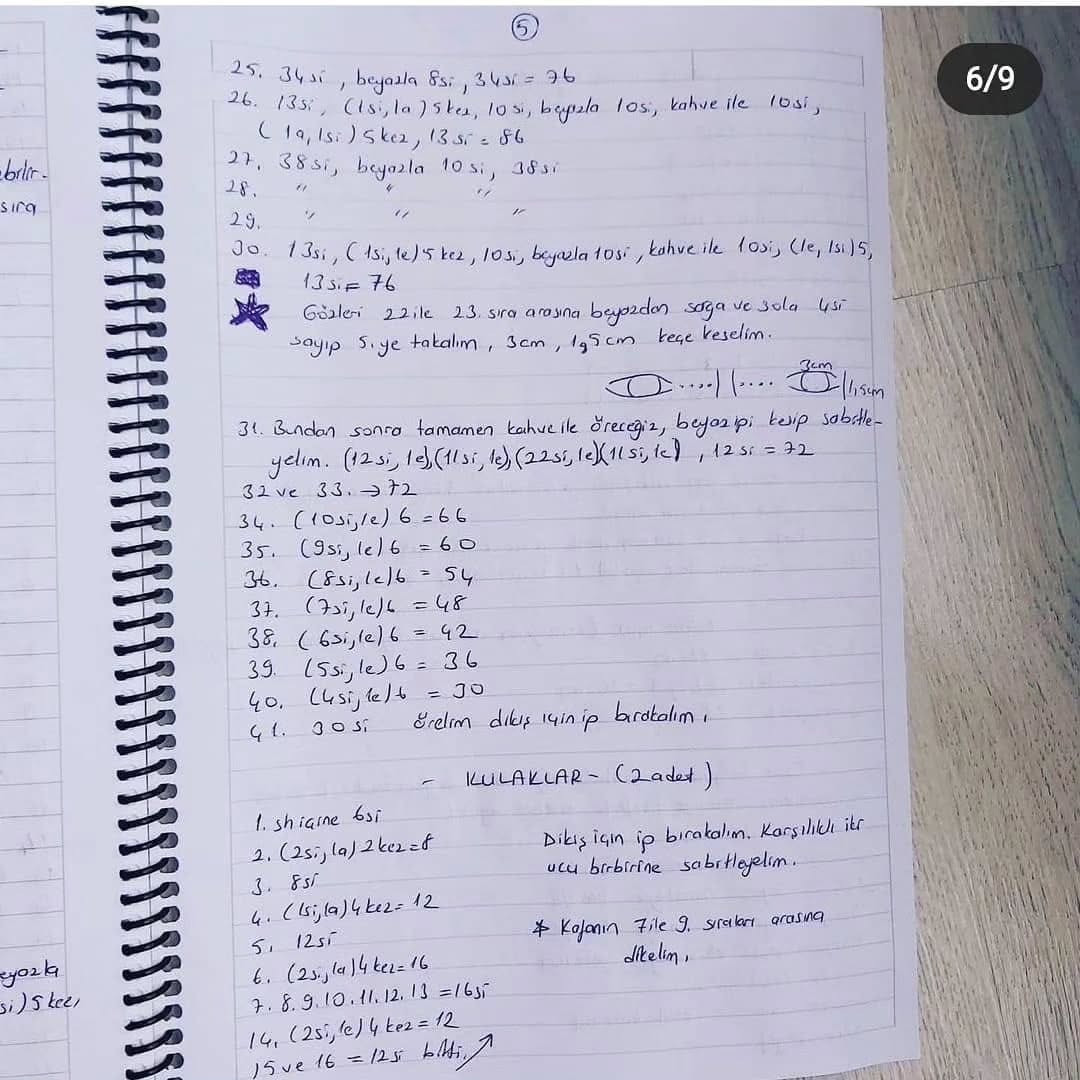 5
6/9
25. 34si, beyazla 8si, 34si = 76
26. 13si, (1si,1a) 5kez, 10si, beyazla 10si, kahve ile 10si,
(1a,1si) 5kez, 13si = 86
27. 38si, beyazla 10si, 38si
28. " " "
29. " " "
30. 13si, (1si,1e) 5 kez, 10si, beyazla 10si, kahve ile 10si, (1e, 1si) 5,
13si = 76
Gözleri 22 ile 23. sıra arasına beyazdan sağa ve sola 4si
sayıp 5.ye takalım, 3cm, 1,5cm keçe keselim.
3cm
1,5cm
31. Bundan sonra tamamen kahve ile öreceğiz, beyaz ipi kesip sabitle-
yelim. (12si, 1e),(11si, 1e),(22si,1e)(11si,1e), 12si = 72
32 ve 33. → 72
34. (10si,1e) 6 = 66
35. (9si, 1e) 6 = 60
36. (8si,1e) 6 = 54
37. (7si,1e) 6 = 48
38. (6si,1e) 6 = 42
39. (5si,1e) 6 = 36
40. (4si,1e) 6 = 30
41. 30si örelim dikiş için ip bırakalım.
- KULAKLAR - (2 adet)
1. sh içine 6si
2. (2si,1a) 2kez = 8
3. 8si
4. (1si,1a) 4kez = 12
5. 12si
6. (2si,1a) 4kez = 16
7. 8. 9. 10. 11. 12. 13 = 16si
14. (2si,1e) 4 kez = 12
15 ve 16 = 12si bitti.
Dikiş için ip bırakalım. Karşılıklı iki
ucu birbirine sabitleyelim.
* Kafanın 7 ile 9. sıraları arasına
dikelim.
abilir.
sıra
eyazla
si) 5 kez,